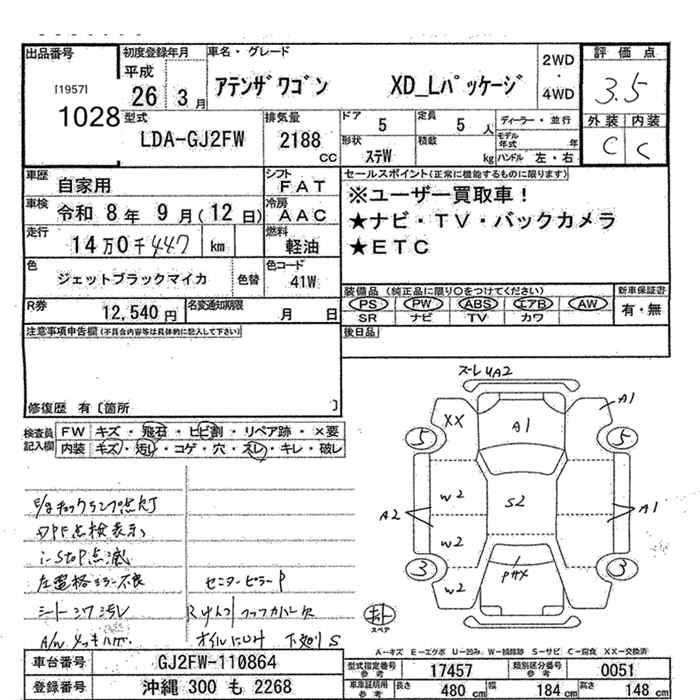 出品番号
[1957]
1028
初度登録年月
平成
26 3月
車名・グレード
アテンザワゴン XD_Lパッケージ
2WD
・
4WD
評価点
3.5
外装 内装
C C
型式
LDA-GJ2FW
排気量
2188
cc
ドア
5
定員
5人
ディーラー・並行
形状
ステW
積載
kg
モデル年式 年
ハンドル 左・右
車歴
自家用
シフト
FAT
車検
令和 8年 9月(12日)
冷房
AAC
走行
14万0千447 km
燃料
軽油
色
ジェットブラックマイカ
色替
色コード
41W
R券
12,540円
名変通知期限
月 日
セールスポイント(正常に機能するものに限ります)
※ユーザー買取車!
★ナビ・TV・バックカメラ
★ETC
装備品 (純正品に限り○をつけてください)
新車保証書
PS PW ABS エアB AW
SR ナビ TV カワ
有・無
後日品
注意事項申告欄(不具合内容等は具体的に記入して下さい)
修復歴 有〔箇所 〕
検査員記入欄
FW キズ・飛石・ヒビ割・リペア跡・×要
内装 キズ・汚れ・コゲ・穴・スレ・キレ・破レ
E/gチェックランプ点灯
DPF点検表示
i-stop点滅
左電格ミラー不良
センターピラーP
シートシワ汚レ
オイルにじみ 下廻りS
A1
XX
A1
5
5
W2
S2
A2
A1
W2
3
3
W2
スペア
A-キズ E-エクボ U-凹み W-補修跡 S-サビ C-腐食 XX-交換済
車台番号
GJ2FW-110864
登録番号
沖縄 300 も 2268
型式指定番号
参考
17457
類別区分番号
参考
0051
車車証明用
参考
長さ
480 cm
幅
184 cm
高さ
148 cm